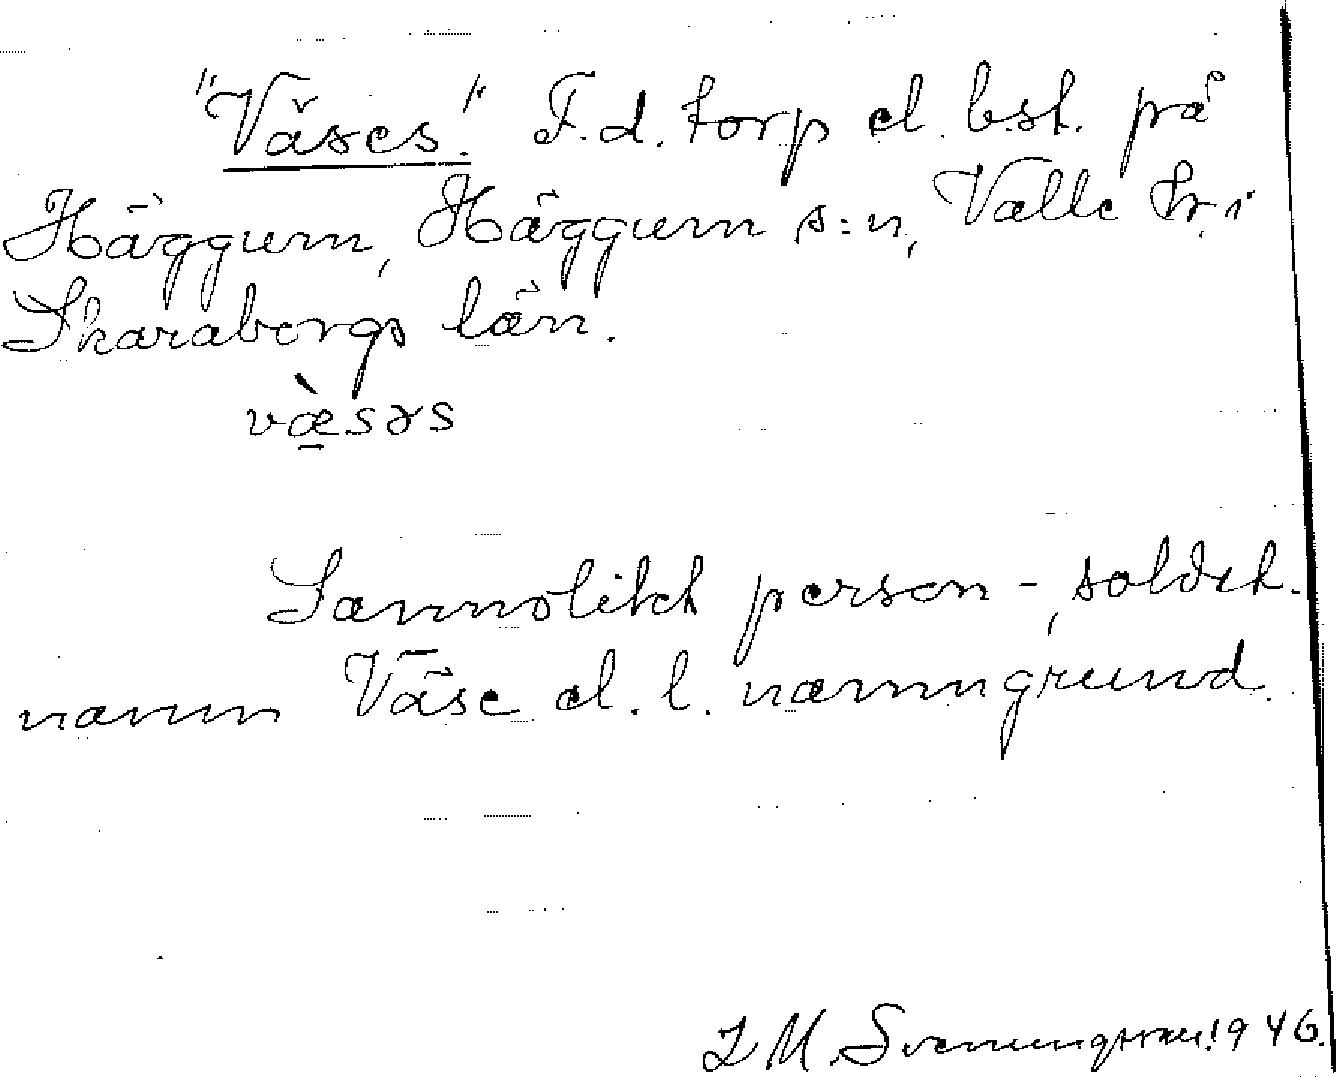 "Väses." F.d. torp el. bst. på
Häggum, Häggum s:n, Valle hr i
Skarabergs län.
væ̀səs
Sannolikt person-, soldat-
namn Väse el. l. namngrund.
L M Svenungsson 1946.